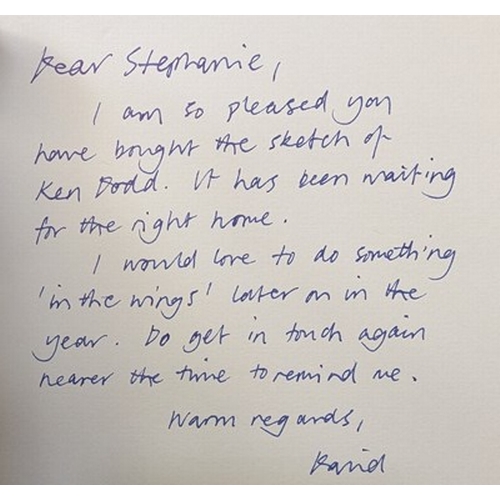 Dear Stephanie,
I am so pleased you
have bought the sketch of
Ken Dodd. It has been waiting
for the right home.
I would love to do something
'in the wings' later on in the
year. Do get in touch again
nearer the time to remind me.
Warm regards,
David